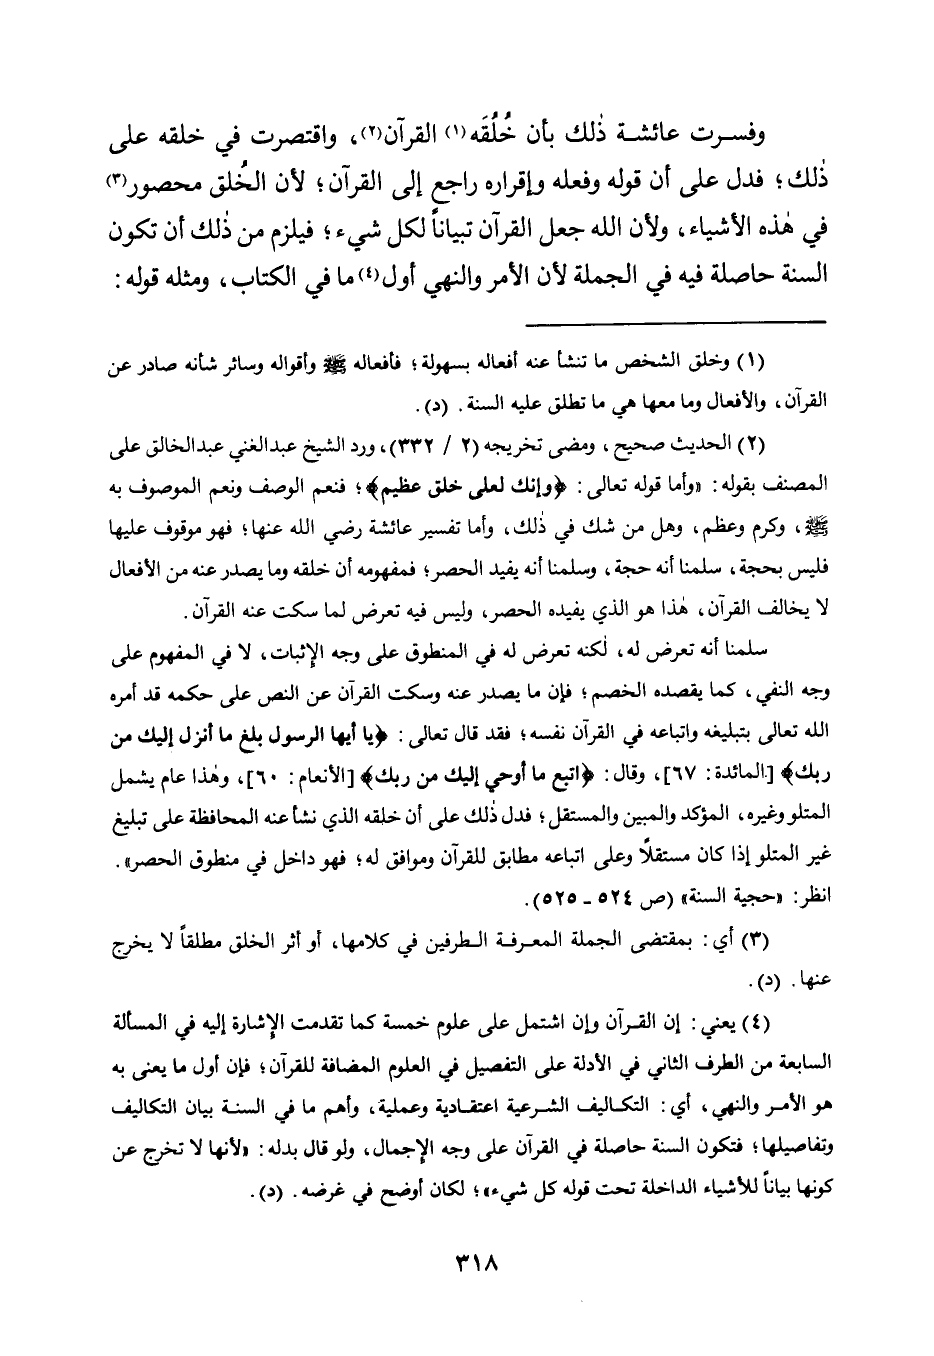 وفسرت عائشة ذٰلك بأن خُلُقَه(١) القرآن(٢)، واقتصرت في خلقه على
ذٰلك؛ فدل على أن قوله وفعله وإقراره راجع إلى القرآن؛ لأن الخُلق محصور(٣)
في هٰذه الأشياء، ولأن الله جعل القرآن تبياناً لكل شيء؛ فيلزم من ذٰلك أن تكون
السنة حاصلة فيه في الجملة لأن الأمر والنهي أول(٤) ما في الكتاب، ومثله قوله:
(١) وخلق الشخص ما تنشأ عنه أفعاله بسهولة؛ فأفعاله ﷺ وأقواله وسائر شأنه صادر عن
القرآن، والأفعال وما معها هي ما تطلق عليه السنة. (د).
(٢) الحديث صحيح، ومضى تخريجه (٢ / ٣٣٢)، ورد الشيخ عبدالغني عبدالخالق على
المصنف بقوله: «وأما قوله تعالى: ﴿وإنك لعلى خلق عظيم﴾؛ فنعم الوصف ونعم الموصوف به
ﷺ، وكرم وعظم، وهل من شك في ذٰلك، وأما تفسير عائشة رضي الله عنها؛ فهو موقوف عليها
فليس بحجة، سلمنا أنه حجة، وسلمنا أنه يفيد الحصر؛ فمفهومه أن خلقه وما يصدر عنه من الأفعال
لا يخالف القرآن، هٰذا هو الذي يفيده الحصر، وليس فيه تعرض لما سكت عنه القرآن.
سلمنا أنه تعرض له، لٰكنه تعرض له في المنطوق على وجه الإثبات، لا في المفهوم على
وجه النفي، كما يقصده الخصم؛ فإن ما يصدر عنه وسكت القرآن عن النص على حكمه قد أمره
الله تعالى بتبليغه واتباعه في القرآن نفسه؛ فقد قال تعالى: ﴿يا أيها الرسول بلغ ما أنزل إليك من
ربك﴾ [المائدة: ٦٧]، وقال: ﴿اتبع ما أوحي إليك من ربك﴾ [الأنعام: ٦٠]، وهٰذا عام يشمل
المتلو وغيره، المؤكد والمبين والمستقل؛ فدل ذٰلك على أن خلقه الذي نشأ عنه المحافظة على تبليغ
غير المتلو إذا كان مستقلاً وعلى اتباعه مطابق للقرآن وموافق له؛ فهو داخل في منطوق الحصر».
انظر: «حجية السنة» (ص ٥٢٤ ـ ٥٢٥).
(٣) أي: بمقتضى الجملة المعرفة الطرفين في كلامها، أو أثر الخلق مطلقاً لا يخرج
عنها. (د).
(٤) يعني: إن القرآن وإن اشتمل على علوم خمسة كما تقدمت الإشارة إليه في المسألة
السابعة من الطرف الثاني في الأدلة على التفصيل في العلوم المضافة للقرآن؛ فإن أول ما يعنى به
هو الأمر والنهي، أي: التكاليف الشرعية اعتقادية وعملية، وأهم ما في السنة بيان التكاليف
وتفاصيلها؛ فتكون السنة حاصلة في القرآن على وجه الإجمال، ولو قال بدله: «لأنها لا تخرج عن
كونها بياناً للأشياء الداخلة تحت قوله كل شيء»؛ لكان أوضح في غرضه. (د).
٣١٨